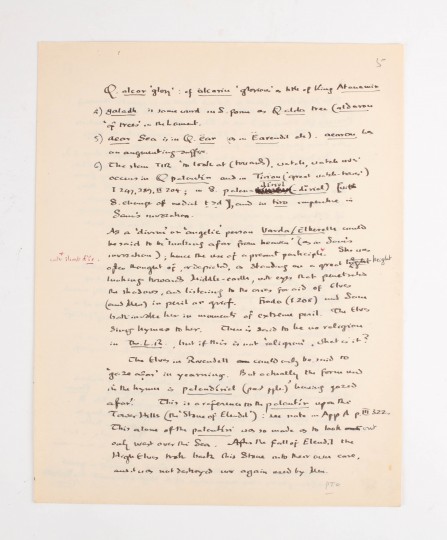 5
Q. alcar 'glory' : cf alcarin 'glorious' as title of King Atanamir
4) galadh is same word in S. form as Q. alda tree (aldaron
'of trees' in the Lament.
5) aear Sea is in Q. ëar (as in Eärendil etc). aearon has
an augmenting suffix.
6) The stem TIR 'to look at (towards), watch, watch over'
occurs in Q palantír and in Tirion ('great watch-tower')
I 247, 389, II 204; in S. palan-díriel (-díriel) [with
S. change of medial t > d], and in tiro imperative in
Sam's invocation.
As a 'divine' or 'angelic' person Varda/Elbereth could
be said to be 'looking afar from heaven' (as in Sam's
invocation); hence the use of a present participle. She was
often thought of, or depicted, as standing on a great height
looking towards Middle-earth, with eyes that penetrated
the shadows, and listening to the cries for aid of Elves
(and Men) in peril or grief. Frodo (I 208) and Sam
both invoke her in moments of extreme peril. The Elves
sing hymns to her. There is said to be no religion
in The L.R. but if this is not 'religion', what is it?
The Elves in Rivendell could only be said to
'gaze afar' in yearning. But actually the form used
in the hymn is palandíriel (past pple) 'having gazed
afar'. This is a reference to the palantír upon the
Tower Hills (the 'Stone of Elendil') : see note in App A p. III 322.
This alone of the palantíri was so made as to look out
only west over the Sea. After the fall of Elendil the
High Elves took back this Stone into their own care,
and it was not destroyed nor again used by Men.
PTO